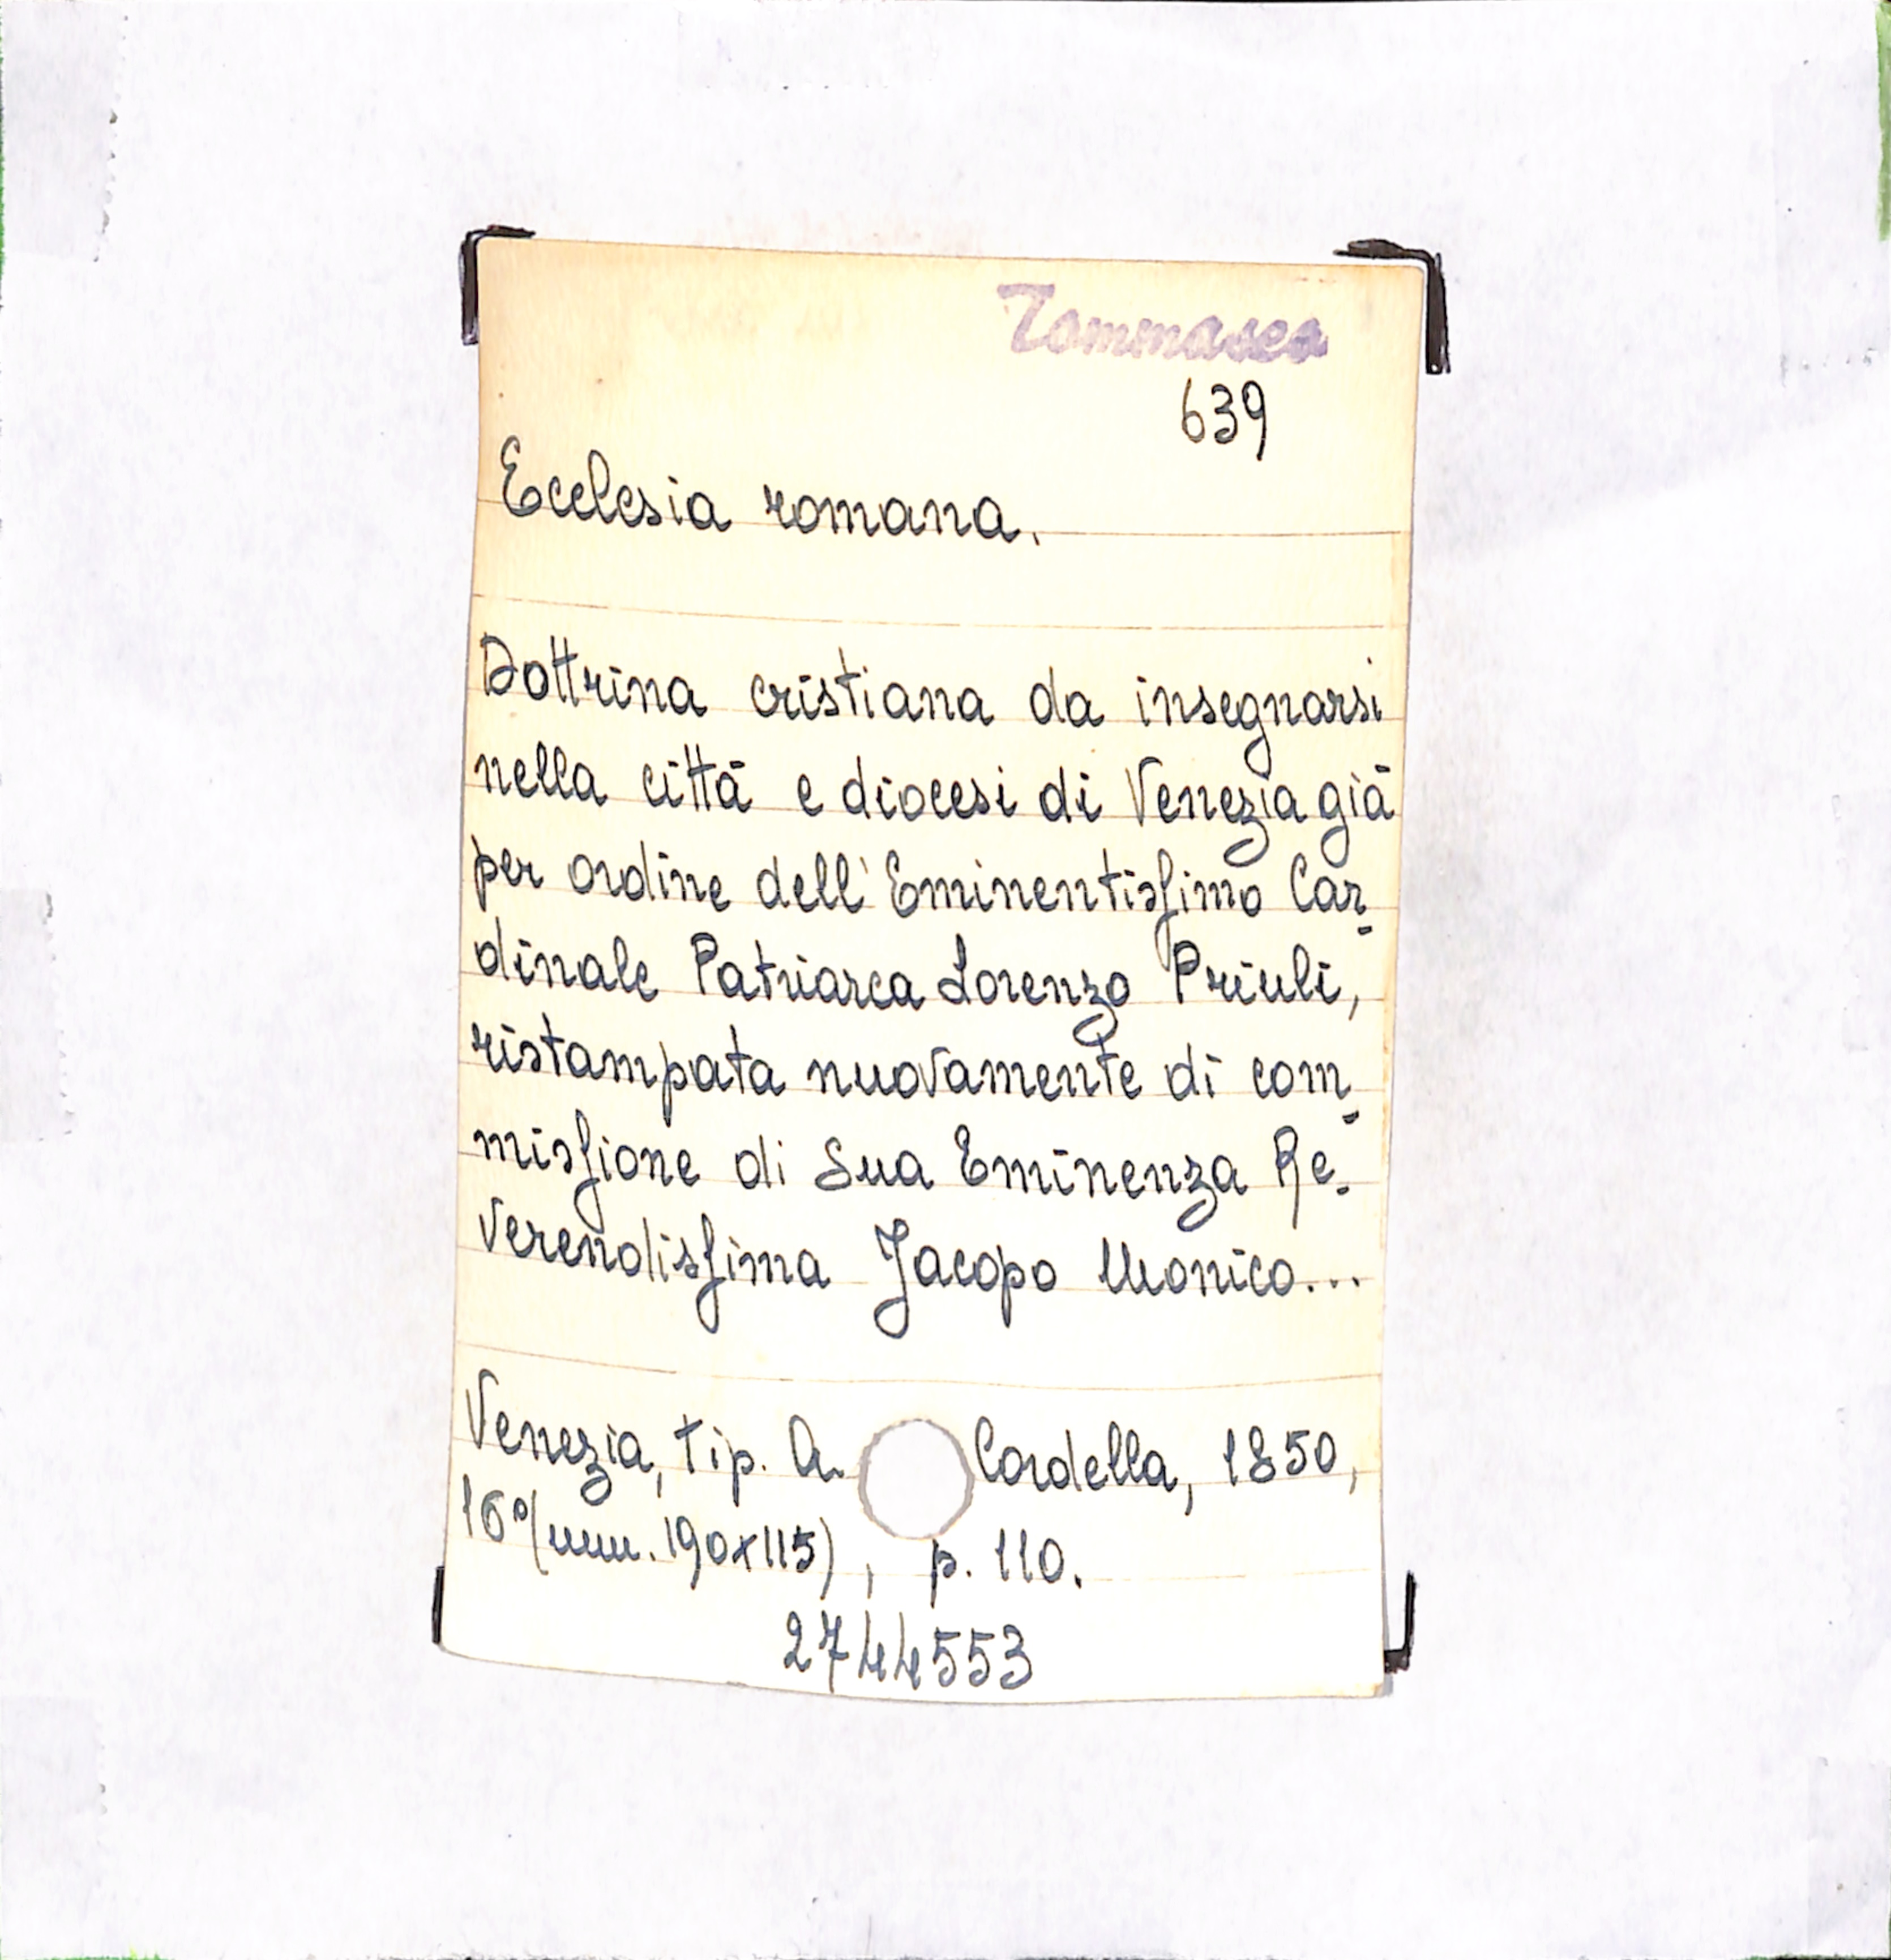 Tommaseo
639
Ecclesia romana.
Dottrina cristiana da insegnarsi
nella città e diocesi di Venezia già
per ordine dell'Eminentissimo Car-
dinale Patriarca Lorenzo Priuli,
ristampata nuovamente di com-
missione di Sua Eminenza Re-
verendissima Jacopo Monico...
Venezia, tip. A. Cordella, 1850,
16° (mm. 190x115), p. 110.
2744553